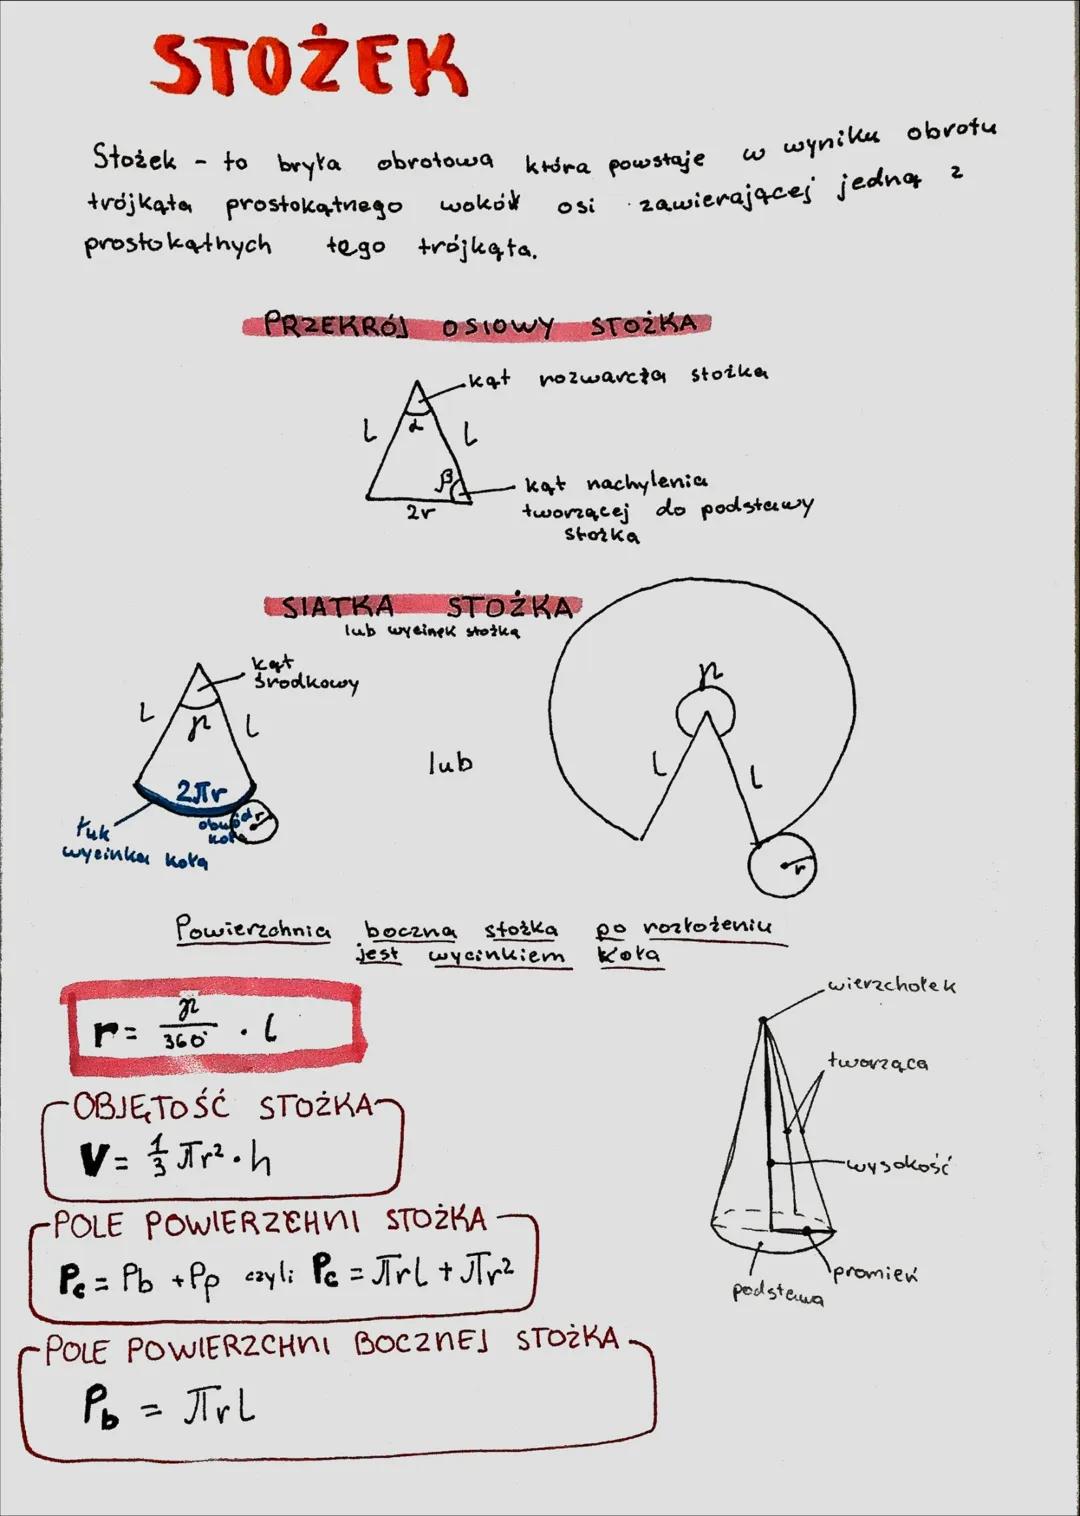 STOŻEK
Stożek - to bryła obrotowa która powstaje w wyniku obrotu
trójkąta prostokątnego wokół osi zawierającej jedną z
prostokątnych tego trójkąta.
PRZEKRÓJ OSIOWY STOŻKA
kąt rozwarcia stożka
l α l
β
2r
kąt nachylenia
tworzącej do podstawy
stożka
SIATKA STOŻKA
lub wycinek stożka
kąt
środkowy
l γ l
2πr
obwód
koła
r
łuk
wycinka koła
lub
γ
l l
r
Powierzchnia boczna stożka po rozłożeniu
jest wycinkiem koła
r = γ/360° · l
OBJĘTOŚĆ STOŻKA
V = 1/3 πr² · h
POLE POWIERZCHNI STOŻKA
Pc = Pb + Pp czyli Pc = πrl + πr²
POLE POWIERZCHNI BOCZNEJ STOŻKA
Pb = πrl
wierzchołek
tworząca
wysokość
promień
podstawa